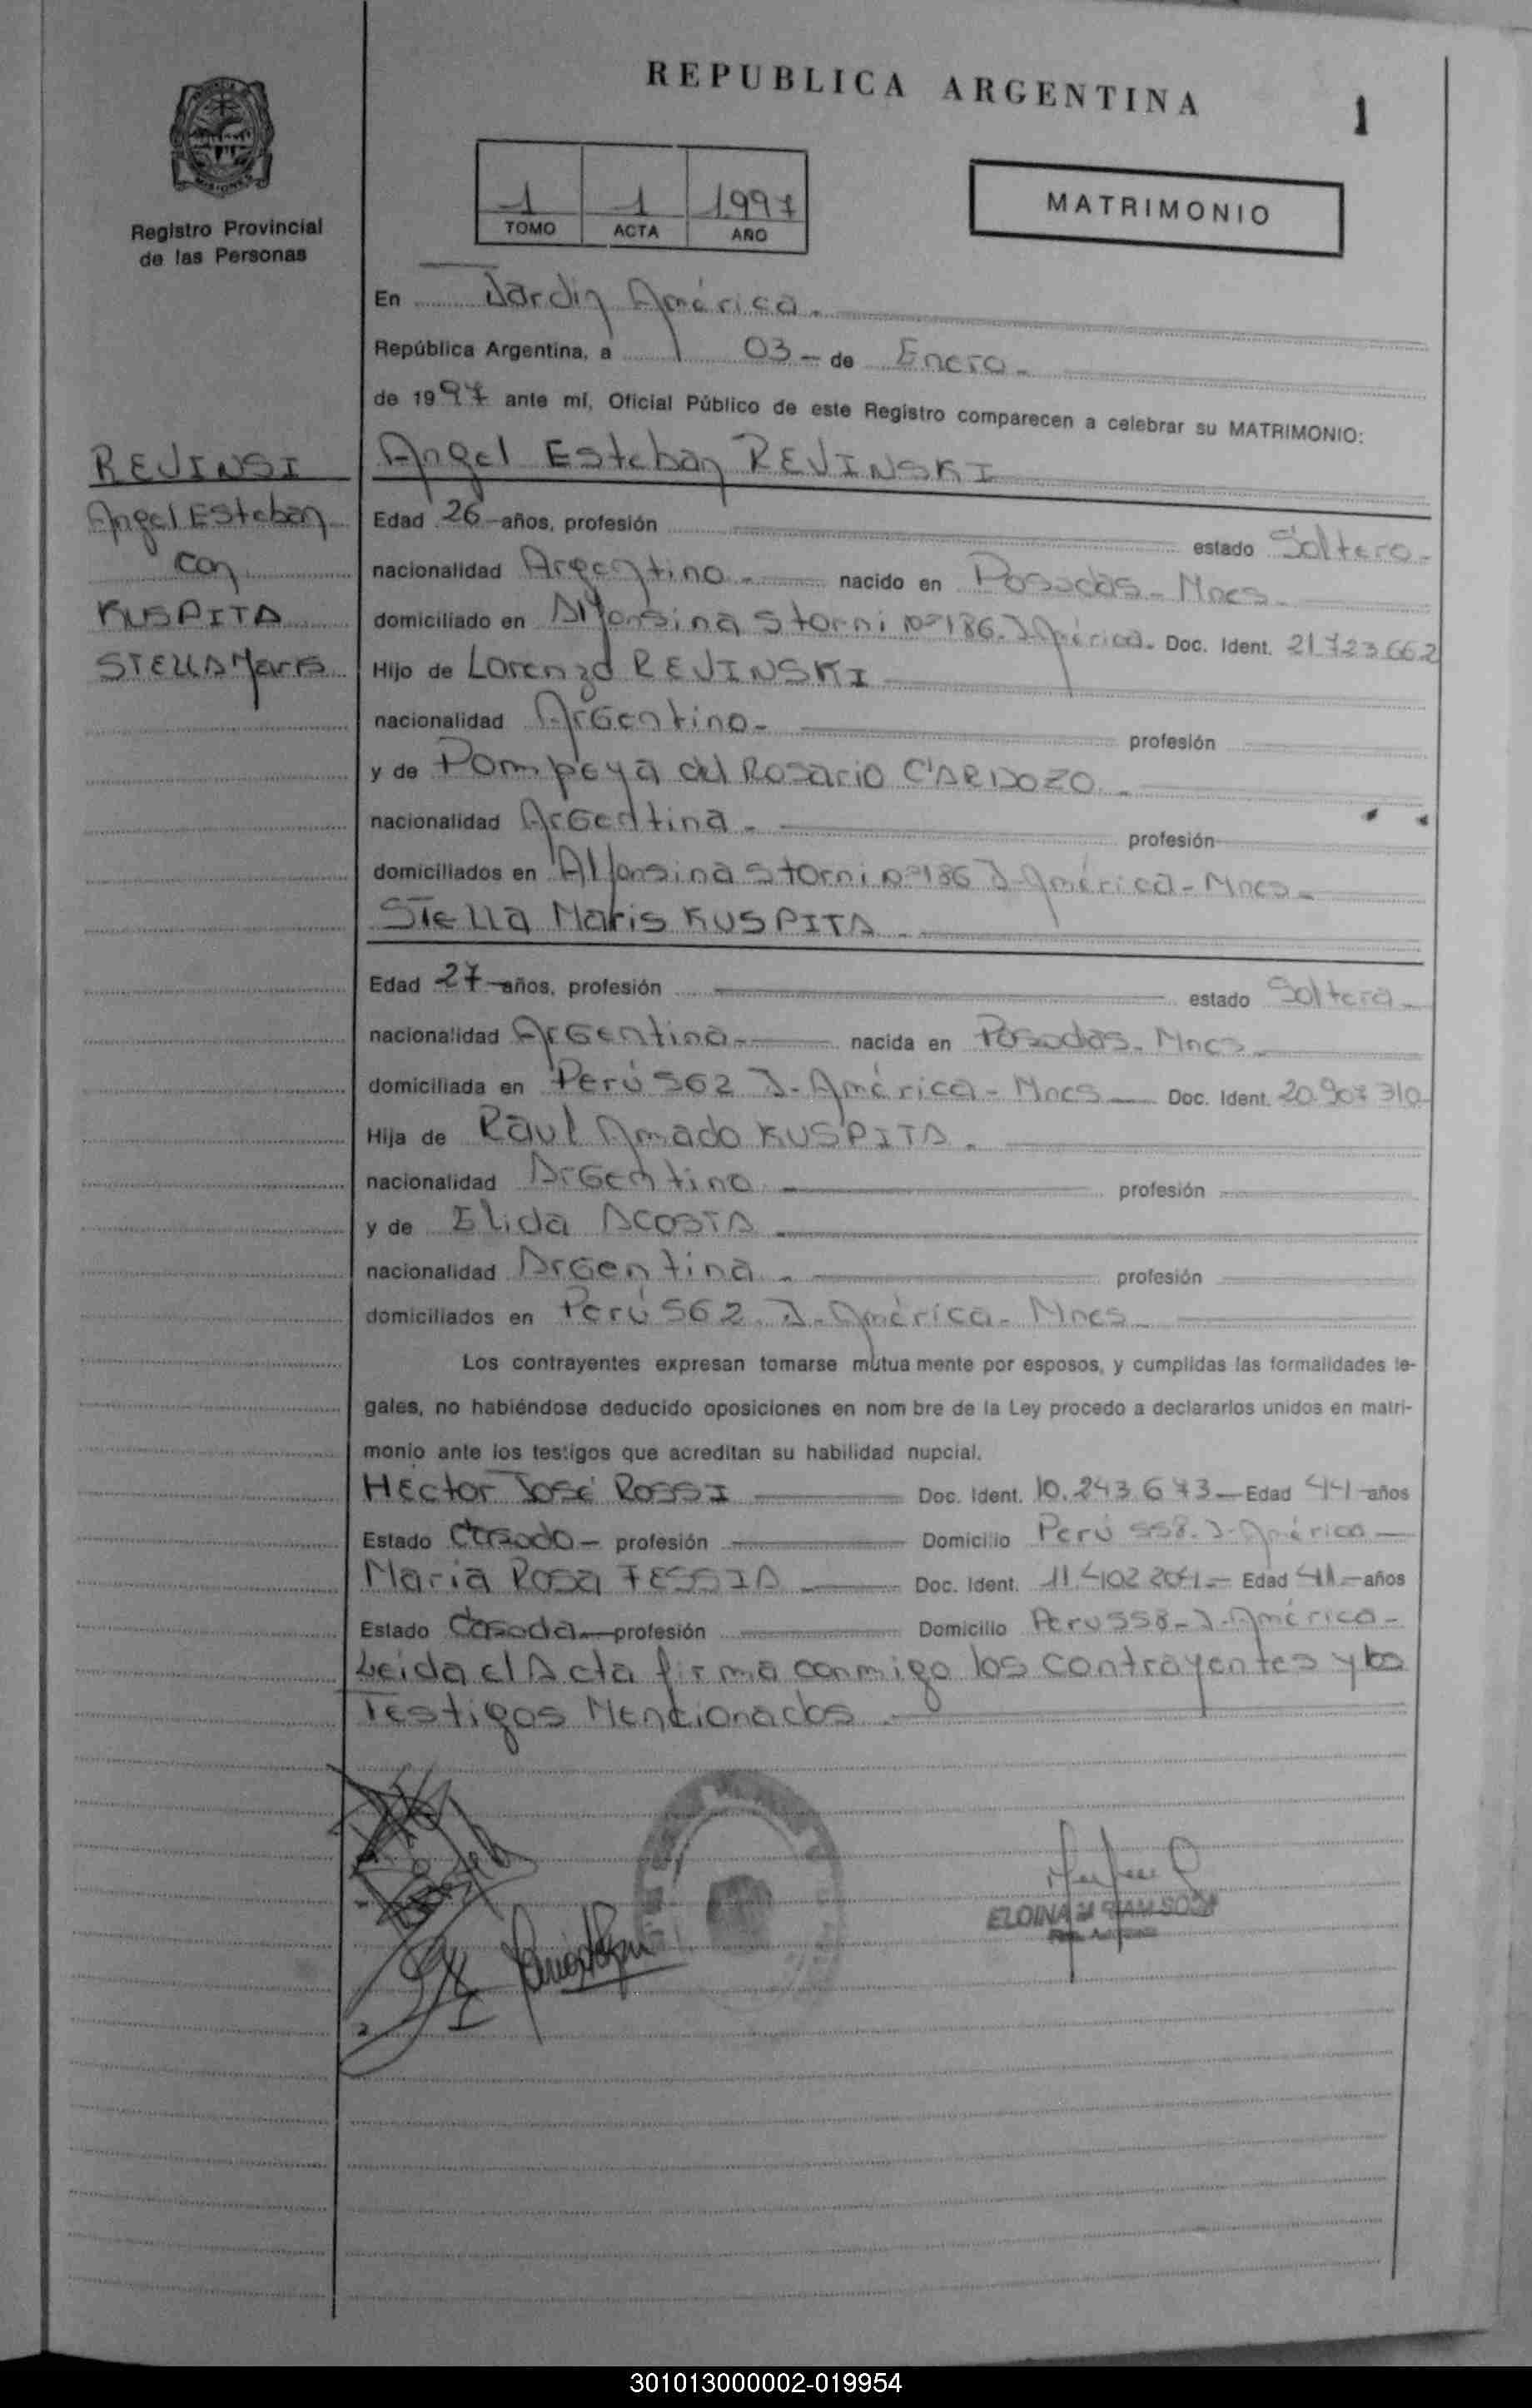 REPUBLICA ARGENTINA
1
MISIONES
Registro Provincial
de las Personas
1 1 1997
TOMO ACTA AÑO
MATRIMONIO
En Jardin América.
República Argentina, a 03 - de Enero -
de 1997 ante mí, Oficial Público de este Registro comparecen a celebrar su MATRIMONIO:
REVINSI
Angel Esteban
con
KUSPITA
STELLA Maris
Angel Esteban REVINSKI
Edad 26 años, profesión estado Soltero -
nacionalidad Argentino - nacido en Posadas - Mnes -
domiciliado en Alfonsina Storni Nº 186. J. América. Doc. Ident. 21.723.662
Hijo de Lorenzo REVINSKI
nacionalidad Argentino - profesión
y de Pompeya del Rosario CARDOZO -
nacionalidad Argentina - profesión
domiciliados en Alfonsina Storni nº 186 J. América - Mnes -
Stella Maris KUSPITA -
Edad 27 años, profesión estado Soltera -
nacionalidad Argentina - nacida en Posadas - Mnes -
domiciliada en Perú 562 J. América - Mnes Doc. Ident. 20.907.310
Hija de Raul Amado KUSPITA -
nacionalidad Argentino profesión
y de Elida ACOSTA
nacionalidad Argentina - profesión
domiciliados en Perú 562. J. América - Mnes
Los contrayentes expresan tomarse mutua mente por esposos, y cumplidas las formalidades le-
gales, no habiéndose deducido oposiciones en nom bre de la Ley procedo a declararlos unidos en matri-
monio ante los testigos que acreditan su habilidad nupcial.
Héctor José ROSSI Doc. Ident. 10.243.673 - Edad 44 años
Estado Casado - profesión Domicilio Perú 558. J. América -
Maria Rosa TESSIA Doc. Ident. 11.402.204 - Edad 41 - años
Estado Casada - profesión Domicilio Peru 558 - J. América -
Leida el Acta firma conmigo los contrayentes y los
Testigos Mencionados -
ELOINA
301013000002-019954